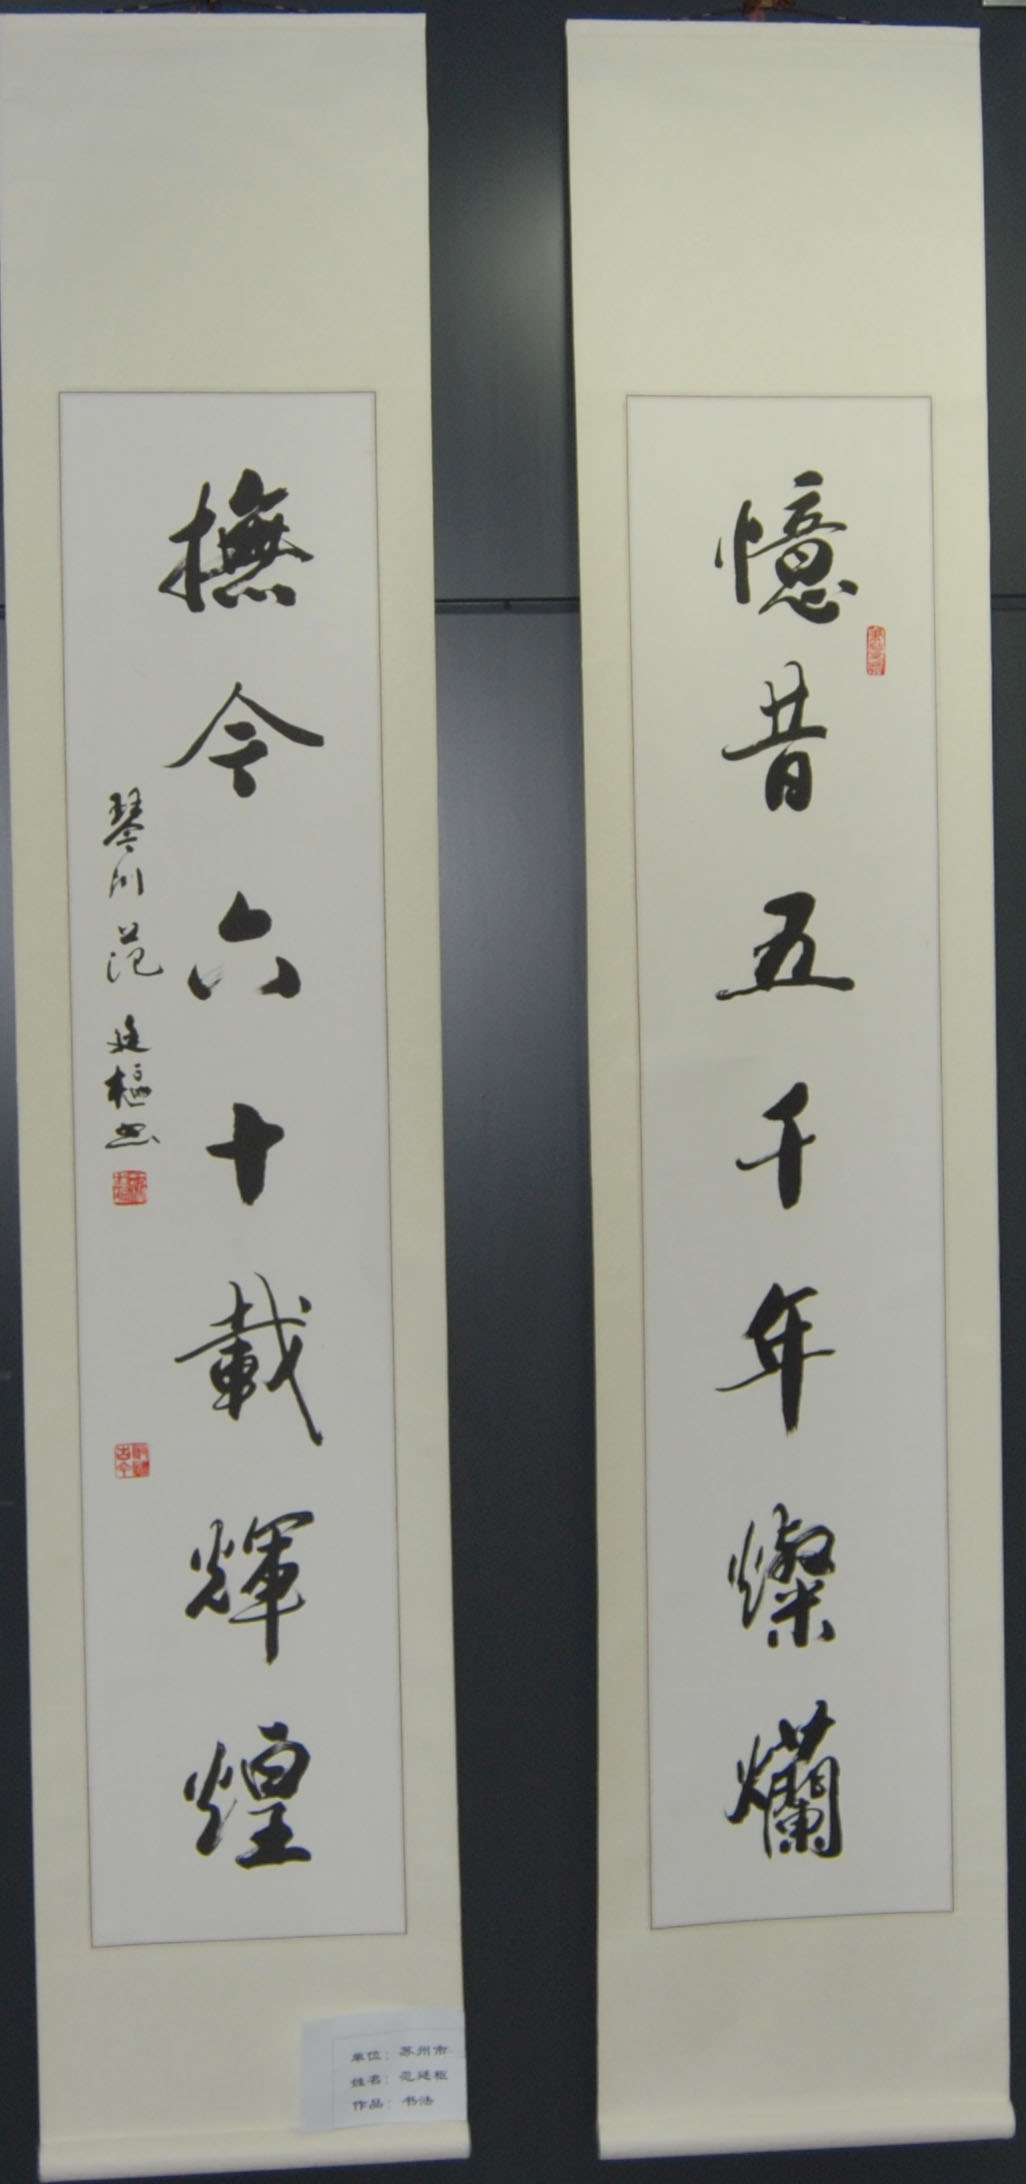 憶昔五千年燦爛
撫今六十載輝煌
琴川范廷樞書
单位：苏州市
姓名：范廷枢
作品：书法